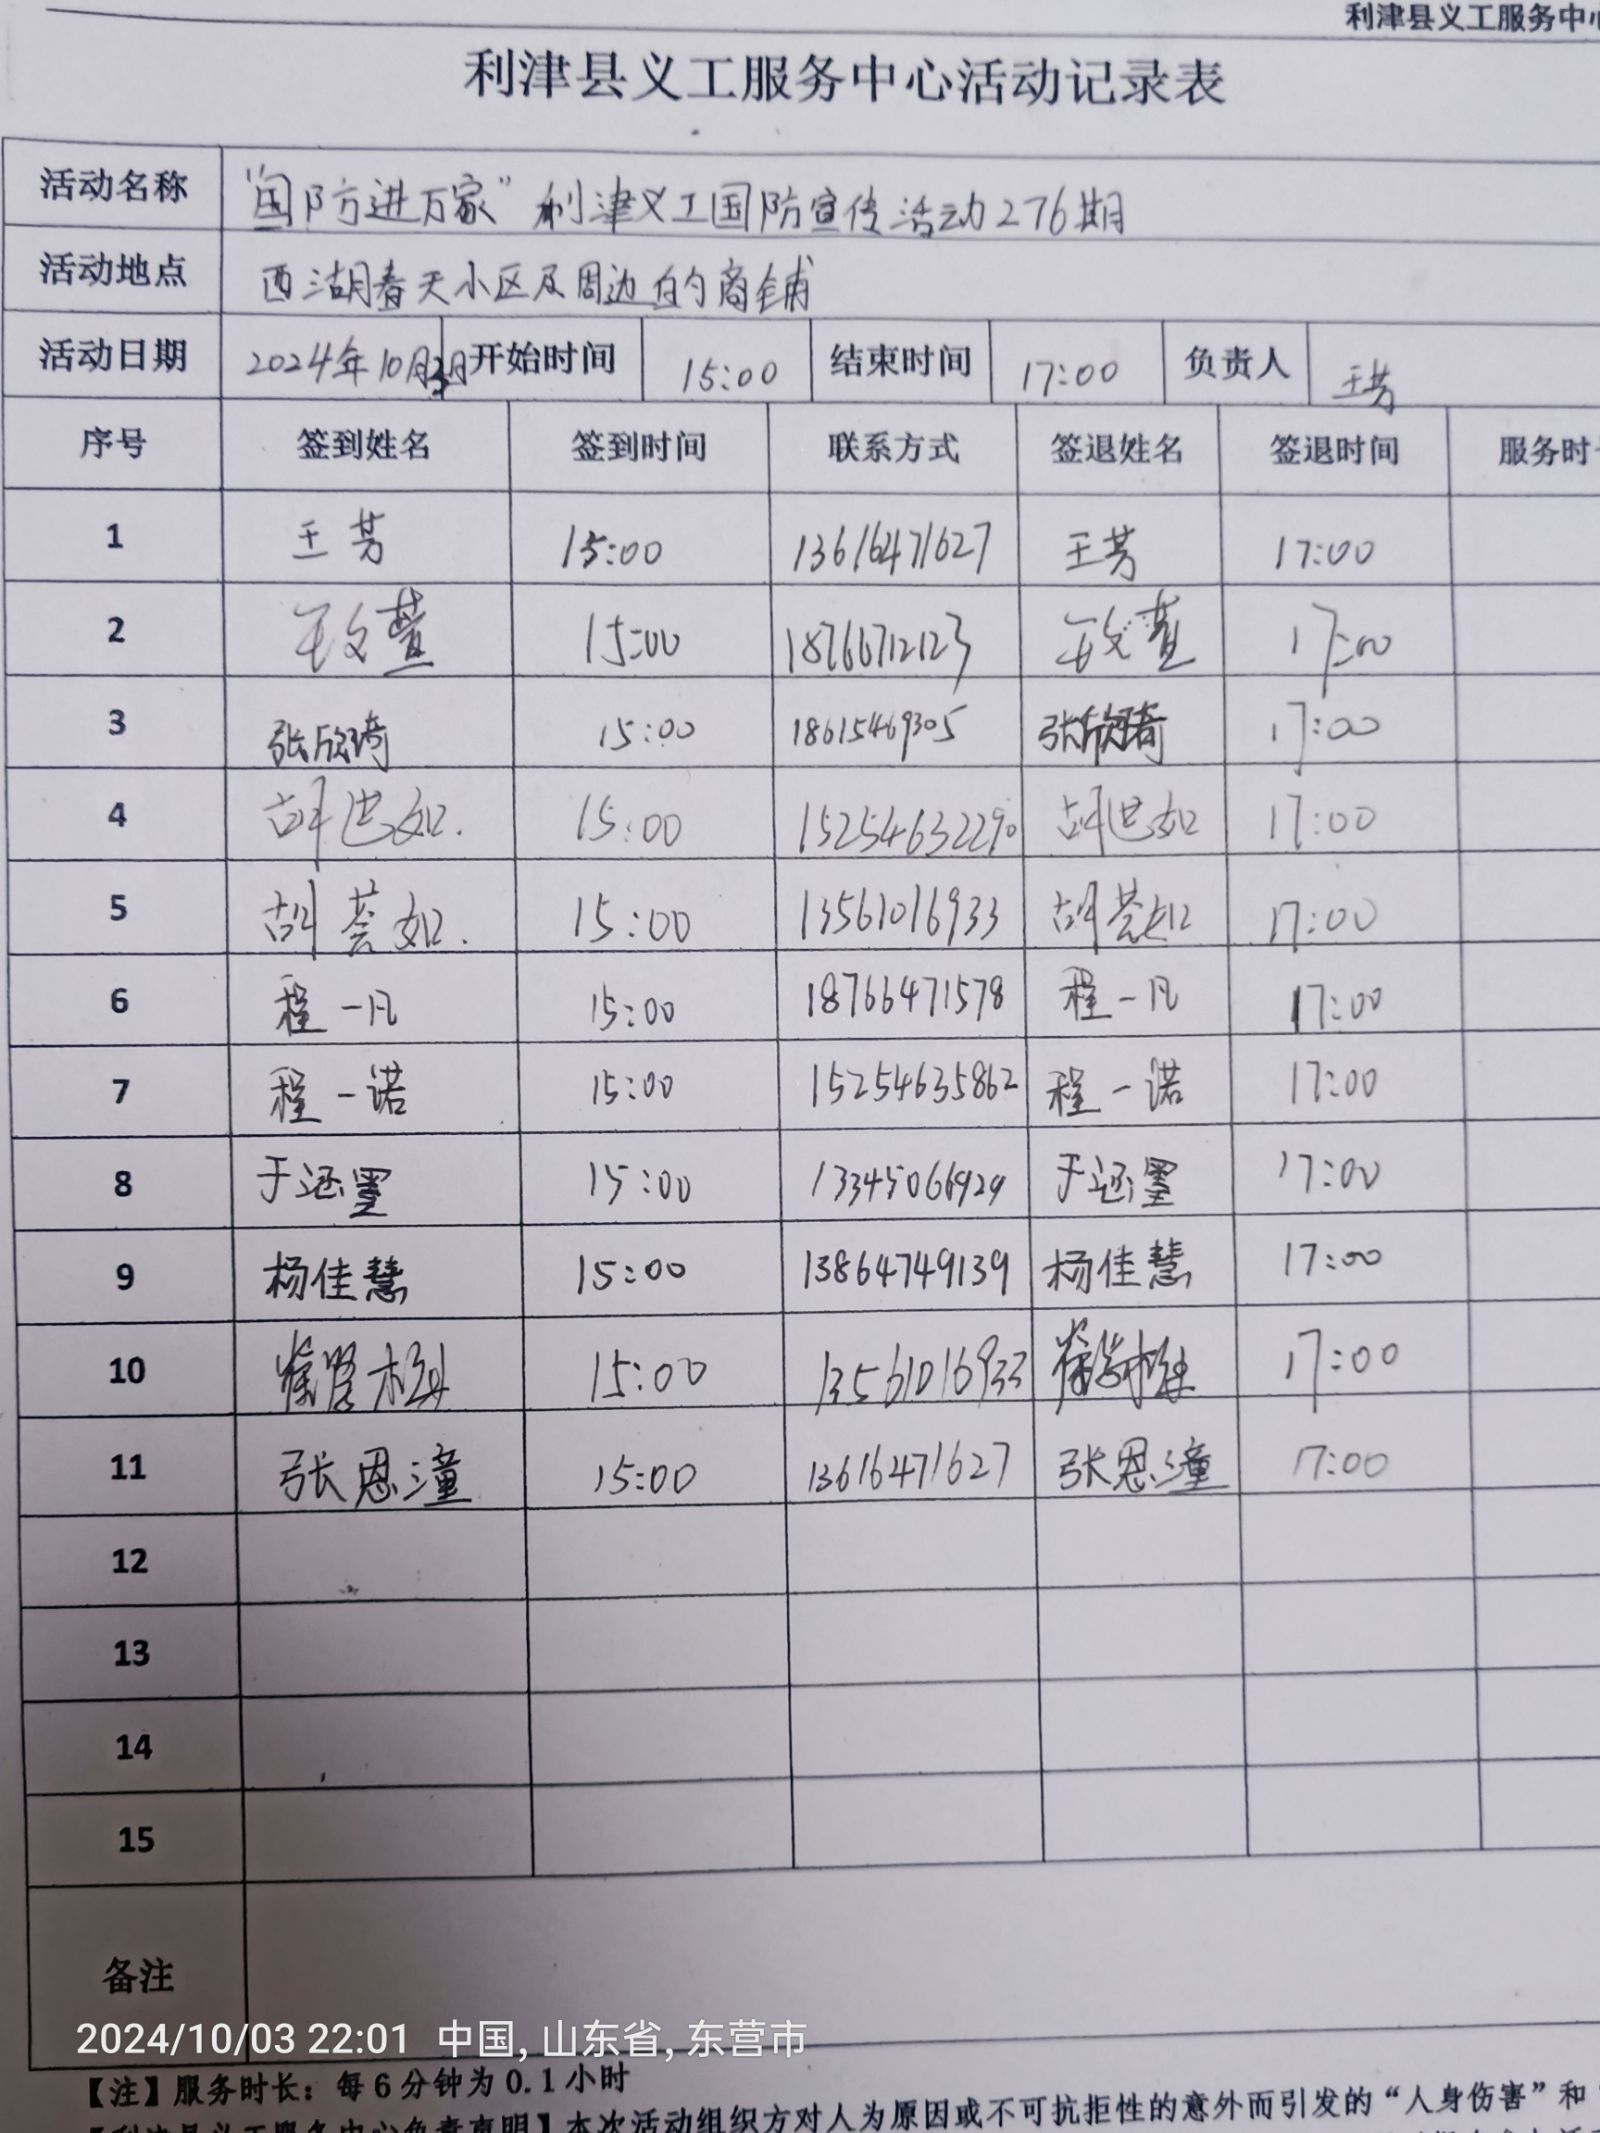 利津县义工服务中
利津县义工服务中心活动记录表
活动名称 “国防进万家”利津义工国防宣传活动276期
活动地点 西湖春天小区及周边的商铺
活动日期 2024年10月3日 开始时间 15:00 结束时间 17:00 负责人 王芳
序号 签到姓名 签到时间 联系方式 签退姓名 签退时间 服务时
1 王芳 15:00 13616471627 王芳 17:00
2 15:00 18766712123 17:00
3 张欣琦 15:00 18615469305 张欣琦 17:00
4 胡芯如. 15:00 15254632290 胡芯如 17:00
5 胡荟如. 15:00 13561016933 胡荟如 17:00
6 程一凡 15:00 18766471578 程一凡 17:00
7 程一诺 15:00 15254635862 程一诺 17:00
8 于涵墨 15:00 13345066929 于涵墨 17:00
9 杨佳慧 15:00 13864749139 杨佳慧 17:00
10 15:00 13561016933 17:00
11 张恩潼 15:00 13616471627 张恩潼 17:00
12
13
14
15
备注
2024/10/03 22:01 中国, 山东省, 东营市
【注】服务时长：每6分钟为0.1小时
【利津县义工服务中心免责声明】本次活动组织方对人为原因或不可抗拒性的意外而引发的“人身伤害”和